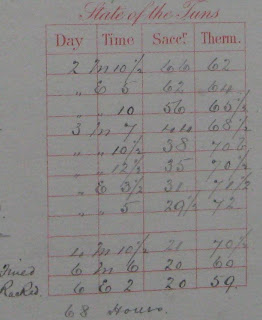 State of the Tuns
Day Time Sacc. Therm.
2 M 10½ 66 62
" E 5 62 64
" " 10 56 65½
3 M 7 44 68½
" " 10½ 38 70
" " 12½ 35 70½
" E 3½ 31 71½
" " 5 29½ 72
4 M 10½ 21 70½
Fined 6 M 6 20 60
Racked 6 E 2 20 59
68 Hours.